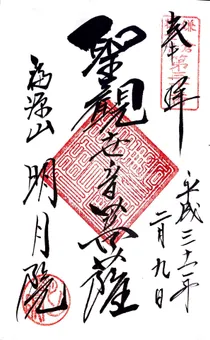 奉拝
平成三十一年
二月九日
聖観世音菩薩
福源山
明月院